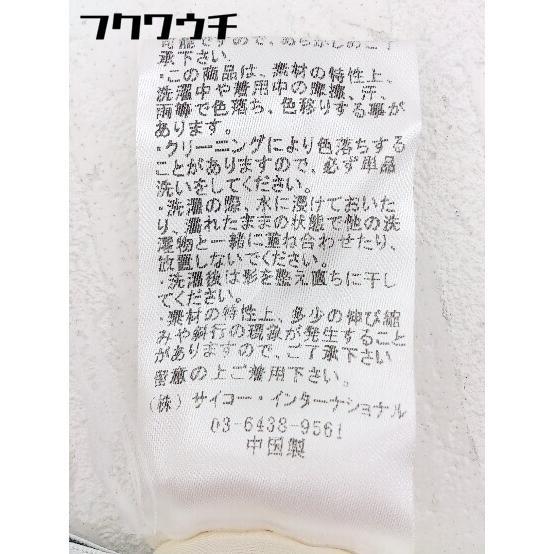 フクワウチ
可能ですので、あらかじめご了
承下さい。
・この商品は、素材の特性上、
洗濯中や着用中の摩擦、汗、
雨等で色落ち、色移りする事が
あります。
・クリーニングにより色落ちする
ことがありますので、必ず単品
洗いをしてください。
・洗濯の際、水に浸けておいた
り、濡れたままの状態で他の洗
濯物と一緒に重ね合わせたり、
放置しないでください。
・洗濯後は形を整え直ちに干し
てください。
・素材の特性上、多少の伸び縮
みや斜行の現象が発生すること
がありますので、ご了承下さい
留意の上ご着用下さい。
(株) サイコー・インターナショナル
03-6438-9561
中国製